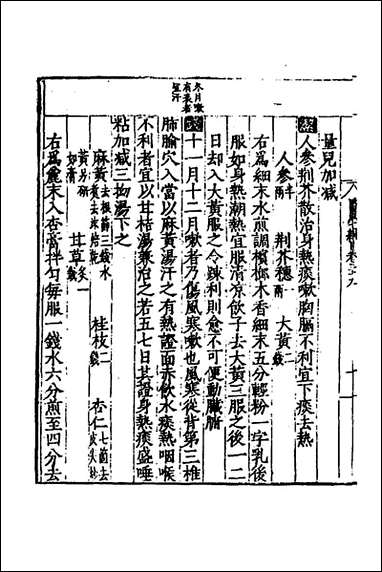 冬月嗽
有表者
宜汗
量兒加減
潔人參荆芥散治身熱痰嗽胸膈不利宜下痰去熱
人參半兩 荆芥穗一兩 大黃二錢
右爲細末水煎調檳榔木香細末五分輕粉一字乳後
服如身熱潮熱宜服清凉飲子去大黃三服之後一二
日却入大黃服之令踈利則愈不可便動臟腑
十一月十二月嗽者乃傷風寒嗽也風寒從背第三椎
肺腧穴入當以麻黃湯汗之有熱證面赤飲水痰熱咽喉
不利者宜以甘桔湯兼治之若五七日其證身熱痰盛唾
粘加減三拗湯下之
麻黃去根節三錢水 桂枝二錢 杏仁七箇去
甘草炙一錢
右爲麄末入杏膏拌勻每服一錢水六分煎至四分去